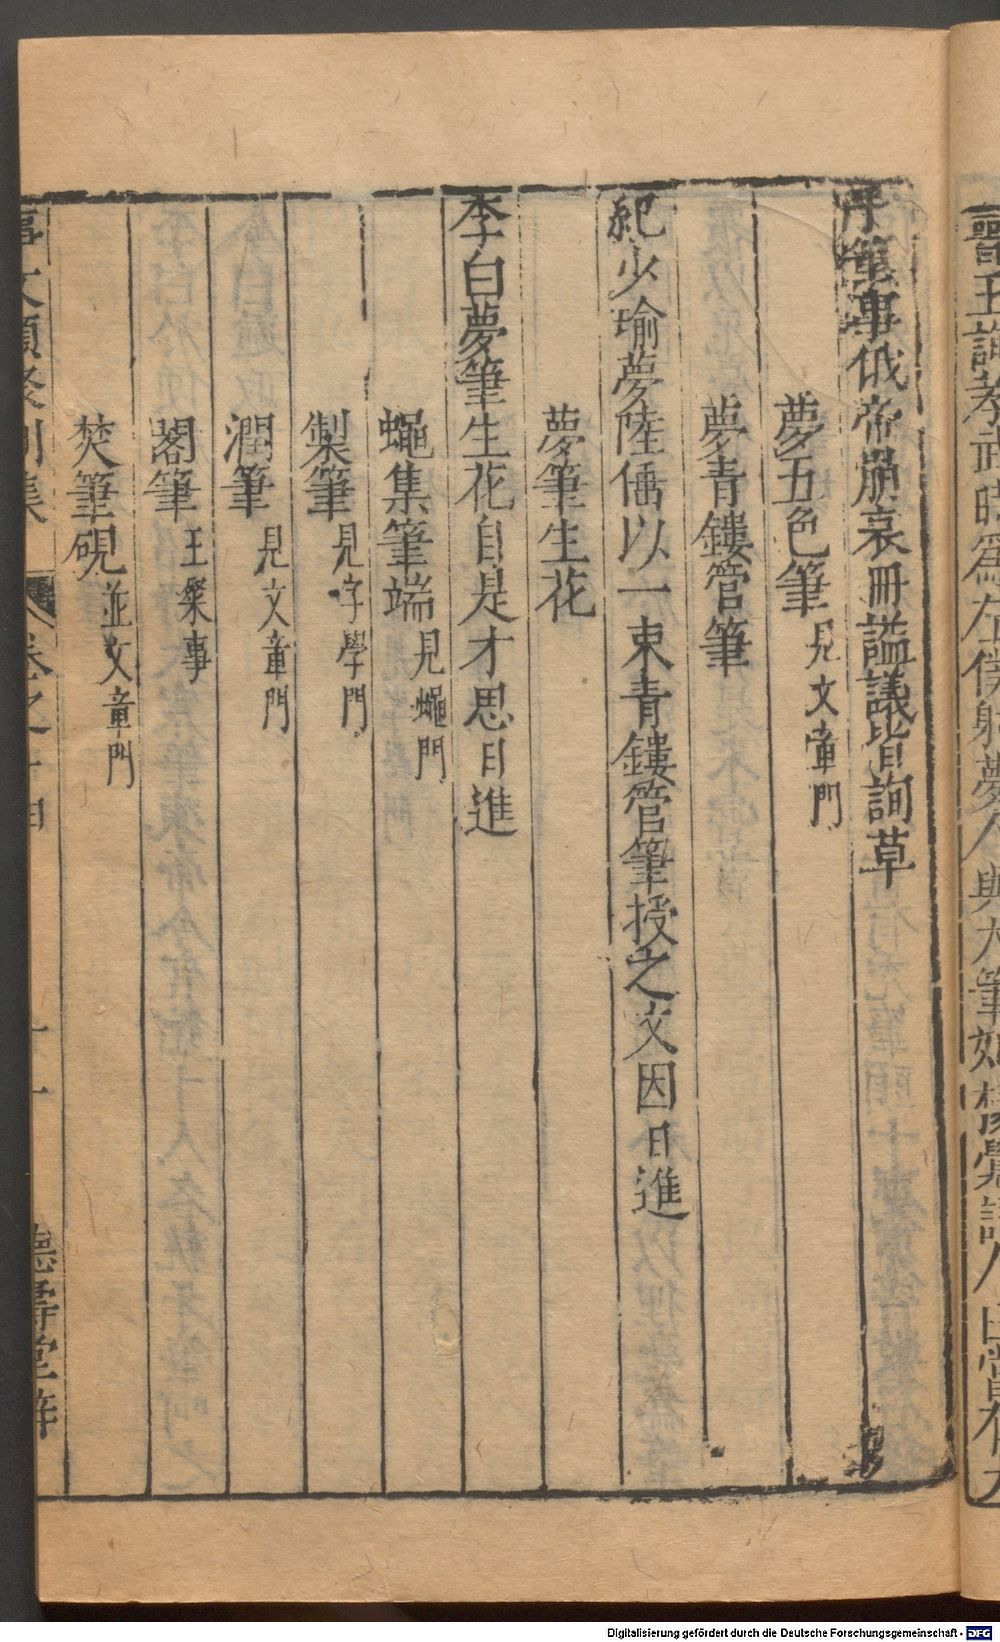 王詢孝武時為左僕射夢人與大筆如椽覺語人曰當有大
手筆事俄帝崩哀冊謚議皆詢草
夢五色筆 見文章門
夢青鏤管筆
紀少瑜夢陸倕以一束青鏤管筆授之文因日進
夢筆生花
李白夢筆生花自是才思日進
蠅集筆端 見蠅門
製筆 見字學門
潤筆 見文章門
閣筆 王粲事
焚筆硯 並文章門
事文類聚別集 卷之十四 德壽堂梓
Digitalisierung gefördert durch die Deutsche Forschungsgemeinschaft - DFG